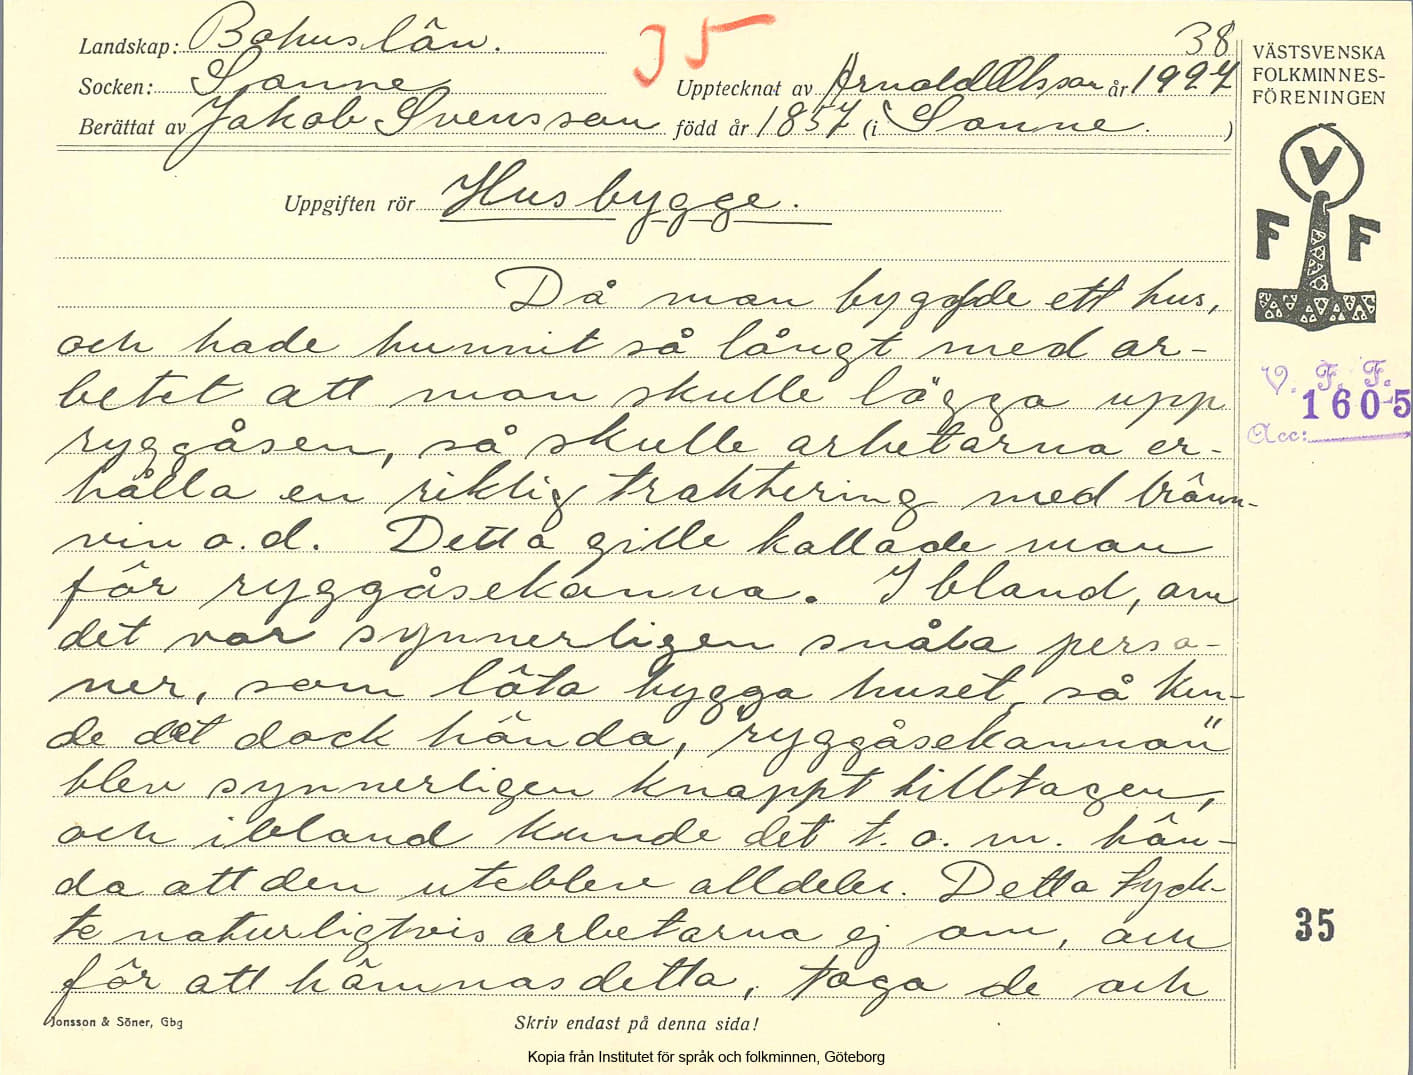 Landskap: Bohuslän.
Socken: Sanne
Upptecknat av Arnold Olsson år 1927
Berättat av Jakob Svensson född år 1857 (i Sanne.)
38
J5
VÄSTSVENSKA
FOLKMINNES-
FÖRENINGEN
V
F F
Uppgiften rör Husbygge.
Då man byggde ett hus,
och hade hunnit så långt med ar-
betet att man skulle lägga upp
ryggåsen, så skulle arbetarna er-
hålla en riktig traktering med bränn-
vin o.d. Detta gille kallade man
för ryggåsekanna. Ibland, om
det var synnerligen snåla perso-
ner, som läto bygga huset, så kun-
de det dock hända, "ryggåsekannan"
blev synnerligen knappt tilltagen,
och ibland kunde det t.o.m. hän-
da att den uteblev alldeles. Detta tyck-
te naturligtvis arbetarna ej om, och
för att hämnas detta, togo de och
V. F. F.
1605
Acc:
35
Jonsson & Söner, Gbg
Skriv endast på denna sida!
Kopia från Institutet för språk och folkminnen, Göteborg